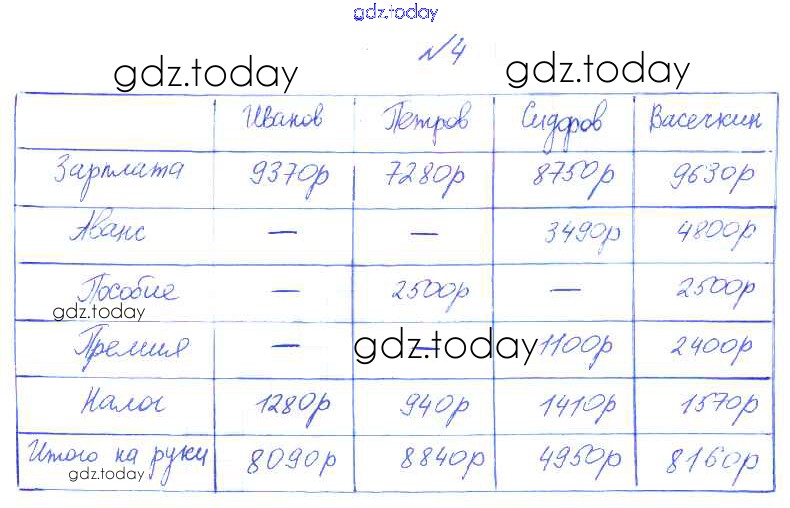 gdz.today
№4
gdz.today gdz.today
Иванов Петров Сидоров Васечкин
Зарплата 9370р 7280р 8750р 9630р
Аванс — — 3490р 4800р
Пособие — 2500р — 2500р
gdz.today
Премия — — 1100р 2400р
gdz.today
Налог 1280р 940р 1410р 1570р
Итого на руки 8090р 8840р 4950р 8160р
gdz.today